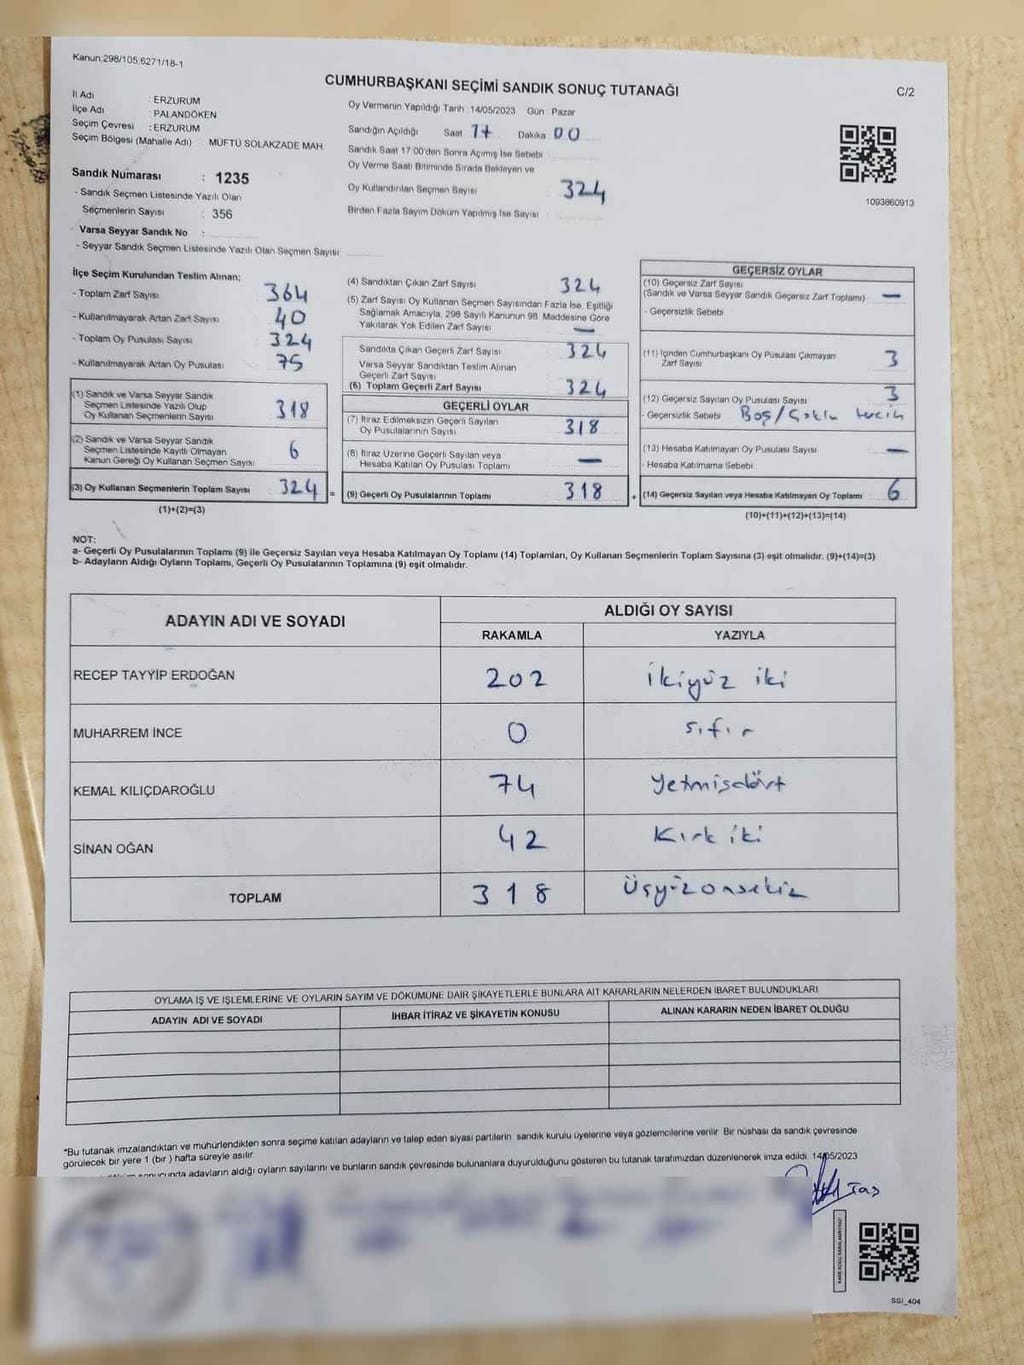 Kanun;298/105,6271/18-1
CUMHURBAŞKANI SEÇİMİ SANDIK SONUÇ TUTANAĞI
C/2
İl Adı : ERZURUM
İlçe Adı : PALANDÖKEN
Seçim Çevresi : ERZURUM
Seçim Bölgesi (Mahalle Adı) MÜFTÜ SOLAKZADE MAH
Sandık Numarası : 1235
- Sandık Seçmen Listesinde Yazılı Olan
Seçmenlerin Sayısı : 356
Varsa Seyyar Sandık No :
- Seyyar Sandık Seçmen Listesinde Yazılı Olan Seçmen Sayısı
Oy Vermenin Yapıldığı Tarih : 14/05/2023 Gün : Pazar
Sandığın Açıldığı Saat 17 Dakika 00
Sandık Saat 17:00'den Sonra Açımış İse Sebebi
Oy Verme Saati Bitiminde Sırada Bekleyen ve
Oy Kullandırılan Seçmen Sayısı 324
Birden Fazla Sayım Döküm Yapılmış İse Sayısı
1093860913
İlçe Seçim Kurulundan Teslim Alınan;
- Toplam Zarf Sayısı 364
- Kullanılmayarak Artan Zarf Sayısı 40
- Toplam Oy Pusulası Sayısı 324
- Kullanılmayarak Artan Oy Pusulası 75
(1) Sandık ve Varsa Seyyar Sandık
Seçmen Listesinde Yazılı Olup
Oy Kullanan Seçmenlerin Sayısı 318
(2) Sandık ve Varsa Seyyar Sandık
Seçmen Listesinde Kayıtlı Olmayan
Kanun Gereği Oy Kullanan Seçmen Sayısı 6
(3) Oy Kullanan Seçmenlerin Toplam Sayısı 324 =
(1)+(2)=(3)
(4) Sandıktan Çıkan Zarf Sayısı 324
(5) Zarf Sayısı Oy Kullanan Seçmen Sayısından Fazla İse, Eşitliği
Sağlamak Amacıyla, 298 Sayılı Kanunun 98. Maddesine Göre
Yakılarak Yok Edilen Zarf Sayısı —
Sandıkta Çıkan Geçerli Zarf Sayısı 324
Varsa Seyyar Sandıktan Teslim Alınan
Geçerli Zarf Sayısı
(6) Toplam Geçerli Zarf Sayısı 324
GEÇERLİ OYLAR
(7) İtiraz Edilmeksizin Geçerli Sayılan
Oy Pusulalarının Sayısı 318
(8) İtiraz Üzerine Geçerli Sayılan veya
Hesaba Katılan Oy Pusulası Toplamı —
(9) Geçerli Oy Pusulalarının Toplamı 318 +
GEÇERSİZ OYLAR
(10) Geçersiz Zarf Sayısı
(Sandık ve Varsa Seyyar Sandık Geçersiz Zarf Toplamı) —
- Geçersizlik Sebebi
(11) İçinden Cumhurbaşkanı Oy Pusulası Çıkmayan
Zarf Sayısı 3
(12) Geçersiz Sayılan Oy Pusulası Sayısı 3
- Geçersizlik Sebebi Boş/Çoklu tercih
(13) Hesaba Katılmayan Oy Pusulası Sayısı —
- Hesaba Katılmama Sebebi
(14) Geçersiz Sayılan veya Hesaba Katılmayan Oy Toplamı 6
(10)+(11)+(12)+(13)=(14)
NOT:
a- Geçerli Oy Pusulalarının Toplamı (9) ile Geçersiz Sayılan veya Hesaba Katılmayan Oy Toplamı (14) Toplamları, Oy Kullanan Seçmenlerin Toplam Sayısına (3) eşit olmalıdır. (9)+(14)=(3)
b- Adayların Aldığı Oyların Toplamı, Geçerli Oy Pusulalarının Toplamına (9) eşit olmalıdır.
ADAYIN ADI VE SOYADI
ALDIĞI OY SAYISI
RAKAMLA YAZIYLA
RECEP TAYYİP ERDOĞAN 202 İkiyüz iki
MUHARREM İNCE 0 sıfır
KEMAL KILIÇDAROĞLU 74 Yetmişdört
SİNAN OĞAN 42 Kırk iki
TOPLAM 318 Üçyüzonsekiz
OYLAMA İŞ VE İŞLEMLERİNE VE OYLARIN SAYIM VE DÖKÜMÜNE DAİR ŞİKAYETLERLE BUNLARA AİT KARARLARIN NELERDEN İBARET BULUNDUKLARI
ADAYIN ADI VE SOYADI İHBAR İTİRAZ VE ŞİKAYETİN KONUSU ALINAN KARARIN NEDEN İBARET OLDUĞU
*Bu tutanak imzalandıktan ve mühürlendikten sonra seçime katılan adayların ve talep eden siyasi partilerin sandık kurulu üyelerine veya gözlemcilerine verilir. Bir nüshası da sandık çevresinde
görülecek bir yere 1 (bir) hafta süreyle asılır.
sonucunda adayların aldığı oyların sayılarını ve bunların sandık çevresinde bulunanlara duyurulduğunu gösteren bu tutanak tarafımızdan düzenlenerek imza edildi. 14/05/2023
SSI_404